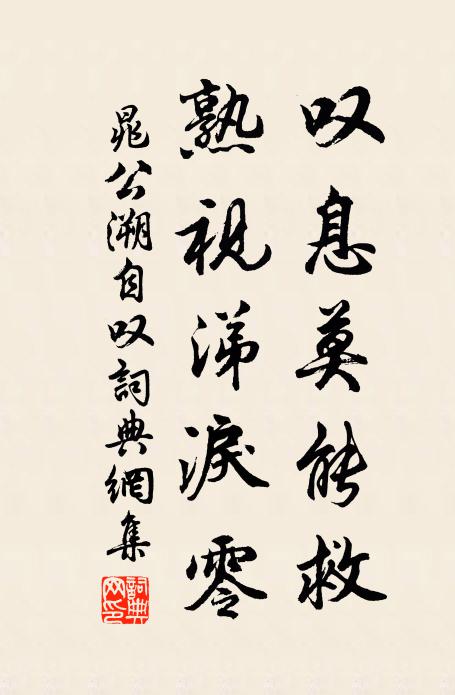 叹息莫能救
熟视涕淚零
晁公溯自叹詞典網集
詞典网印